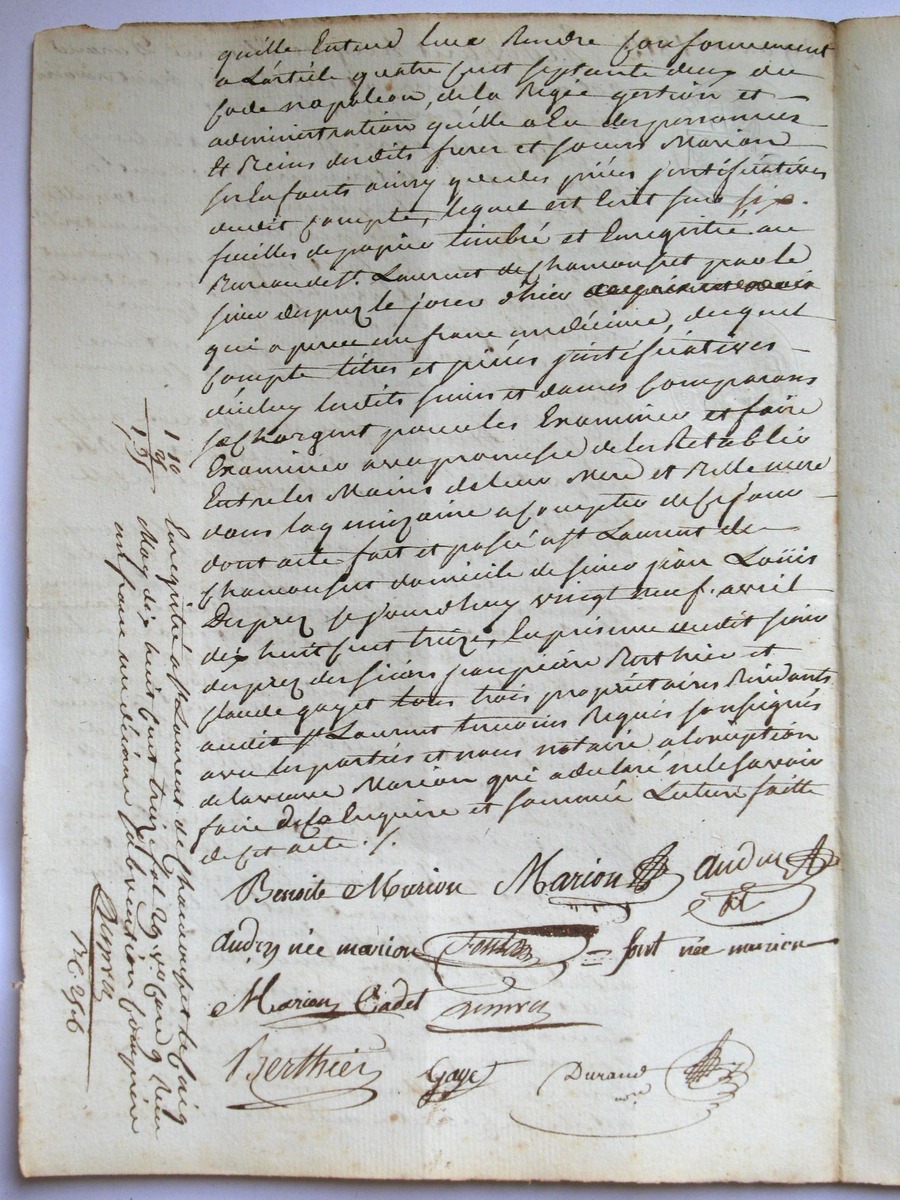 qu'ille Entend leur Rendre Conformement
a L'article quatre Cent Septante deux du
Code napoleon, de la Régie gestion et
administration qu'ille a Eu des personnes
Et Biens desdits frères et soeurs Marion
ses Enfants ainsy que des pièces justificatives
dudit Compte, lequel est Ecrit sur six
feuilles de papier timbré et Enregistré au
Bureau de St. Laurent de Chamousset par le
sieur Duprez le jour d'hier
qui a perçu un franc un décime, duquel
Compte titres et pièces justificatives
d'iceluy lesdits sieurs et dames Comparans
se Chargent pour les Examiner et faire
Examiner avec promesse de les Rétablir
Entre les Mains de leur Mere et Belle mere
dans la quinzaine a Compter de Ce jour
dont acte fait et passé a St Laurent de
Chamousset domicile de sieur jean Louis
Duprez Ce jourdhuy vingt neuf avril
dix huit Cent treize, En présence dudit sieur
duprez des sieurs jean pierre Berthier et
Claude gayet tous trois propriétaires Résidants
audit St Laurent temoins Requis soussignés
avec les parties et nous notaire a l'exception
de la veuve Marion qui a declaré ne le savoir
faire de ce Enquise et sommée Lecture faitte
de Cet acte ./.
Benoite Marion Marion Audin
Audin née marion Font = font née marion
Marion Cadet Duprez
Berthier Gayet Durand
nre
1 10
25
1,35
Enregistré a St Laurent de Chamousset le Cinq
May dix huit Cent treize fol. 29 vo. Case 9 Reçu
un franc un décime Subvention Comprise
Duprez